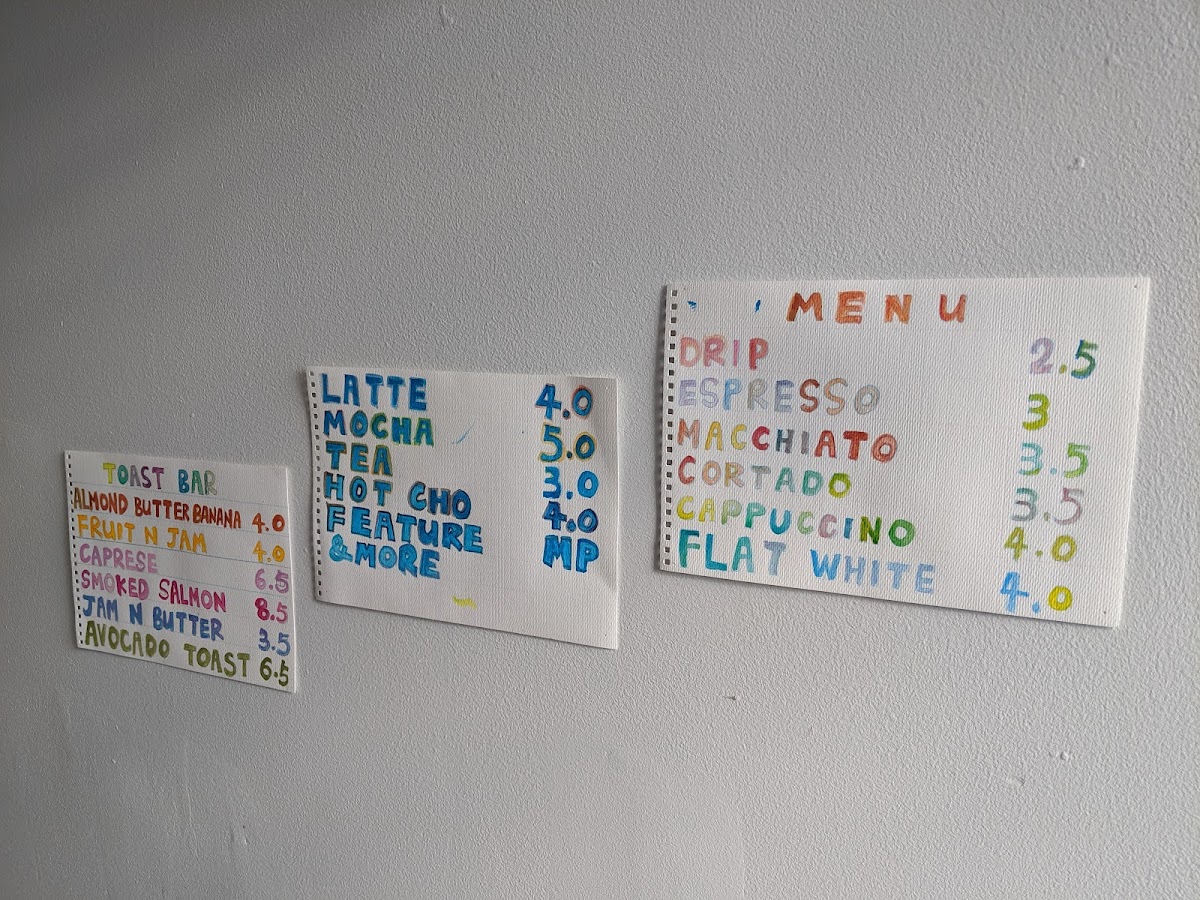 TOAST BAR
ALMOND BUTTER BANANA 4.0
FRUIT N JAM 4.0
CAPRESE 6.5
SMOKED SALMON 8.5
JAM N BUTTER 3.5
AVOCADO TOAST 6.5
LATTE 4.0
MOCHA 5.0
TEA 3.0
HOT CHO 4.0
FEATURE
&MORE MP
MENU
DRIP 2.5
ESPRESSO 3
MACCHIATO 3.5
CORTADO 3.5
CAPPUCCINO 4.0
FLAT WHITE 4.0